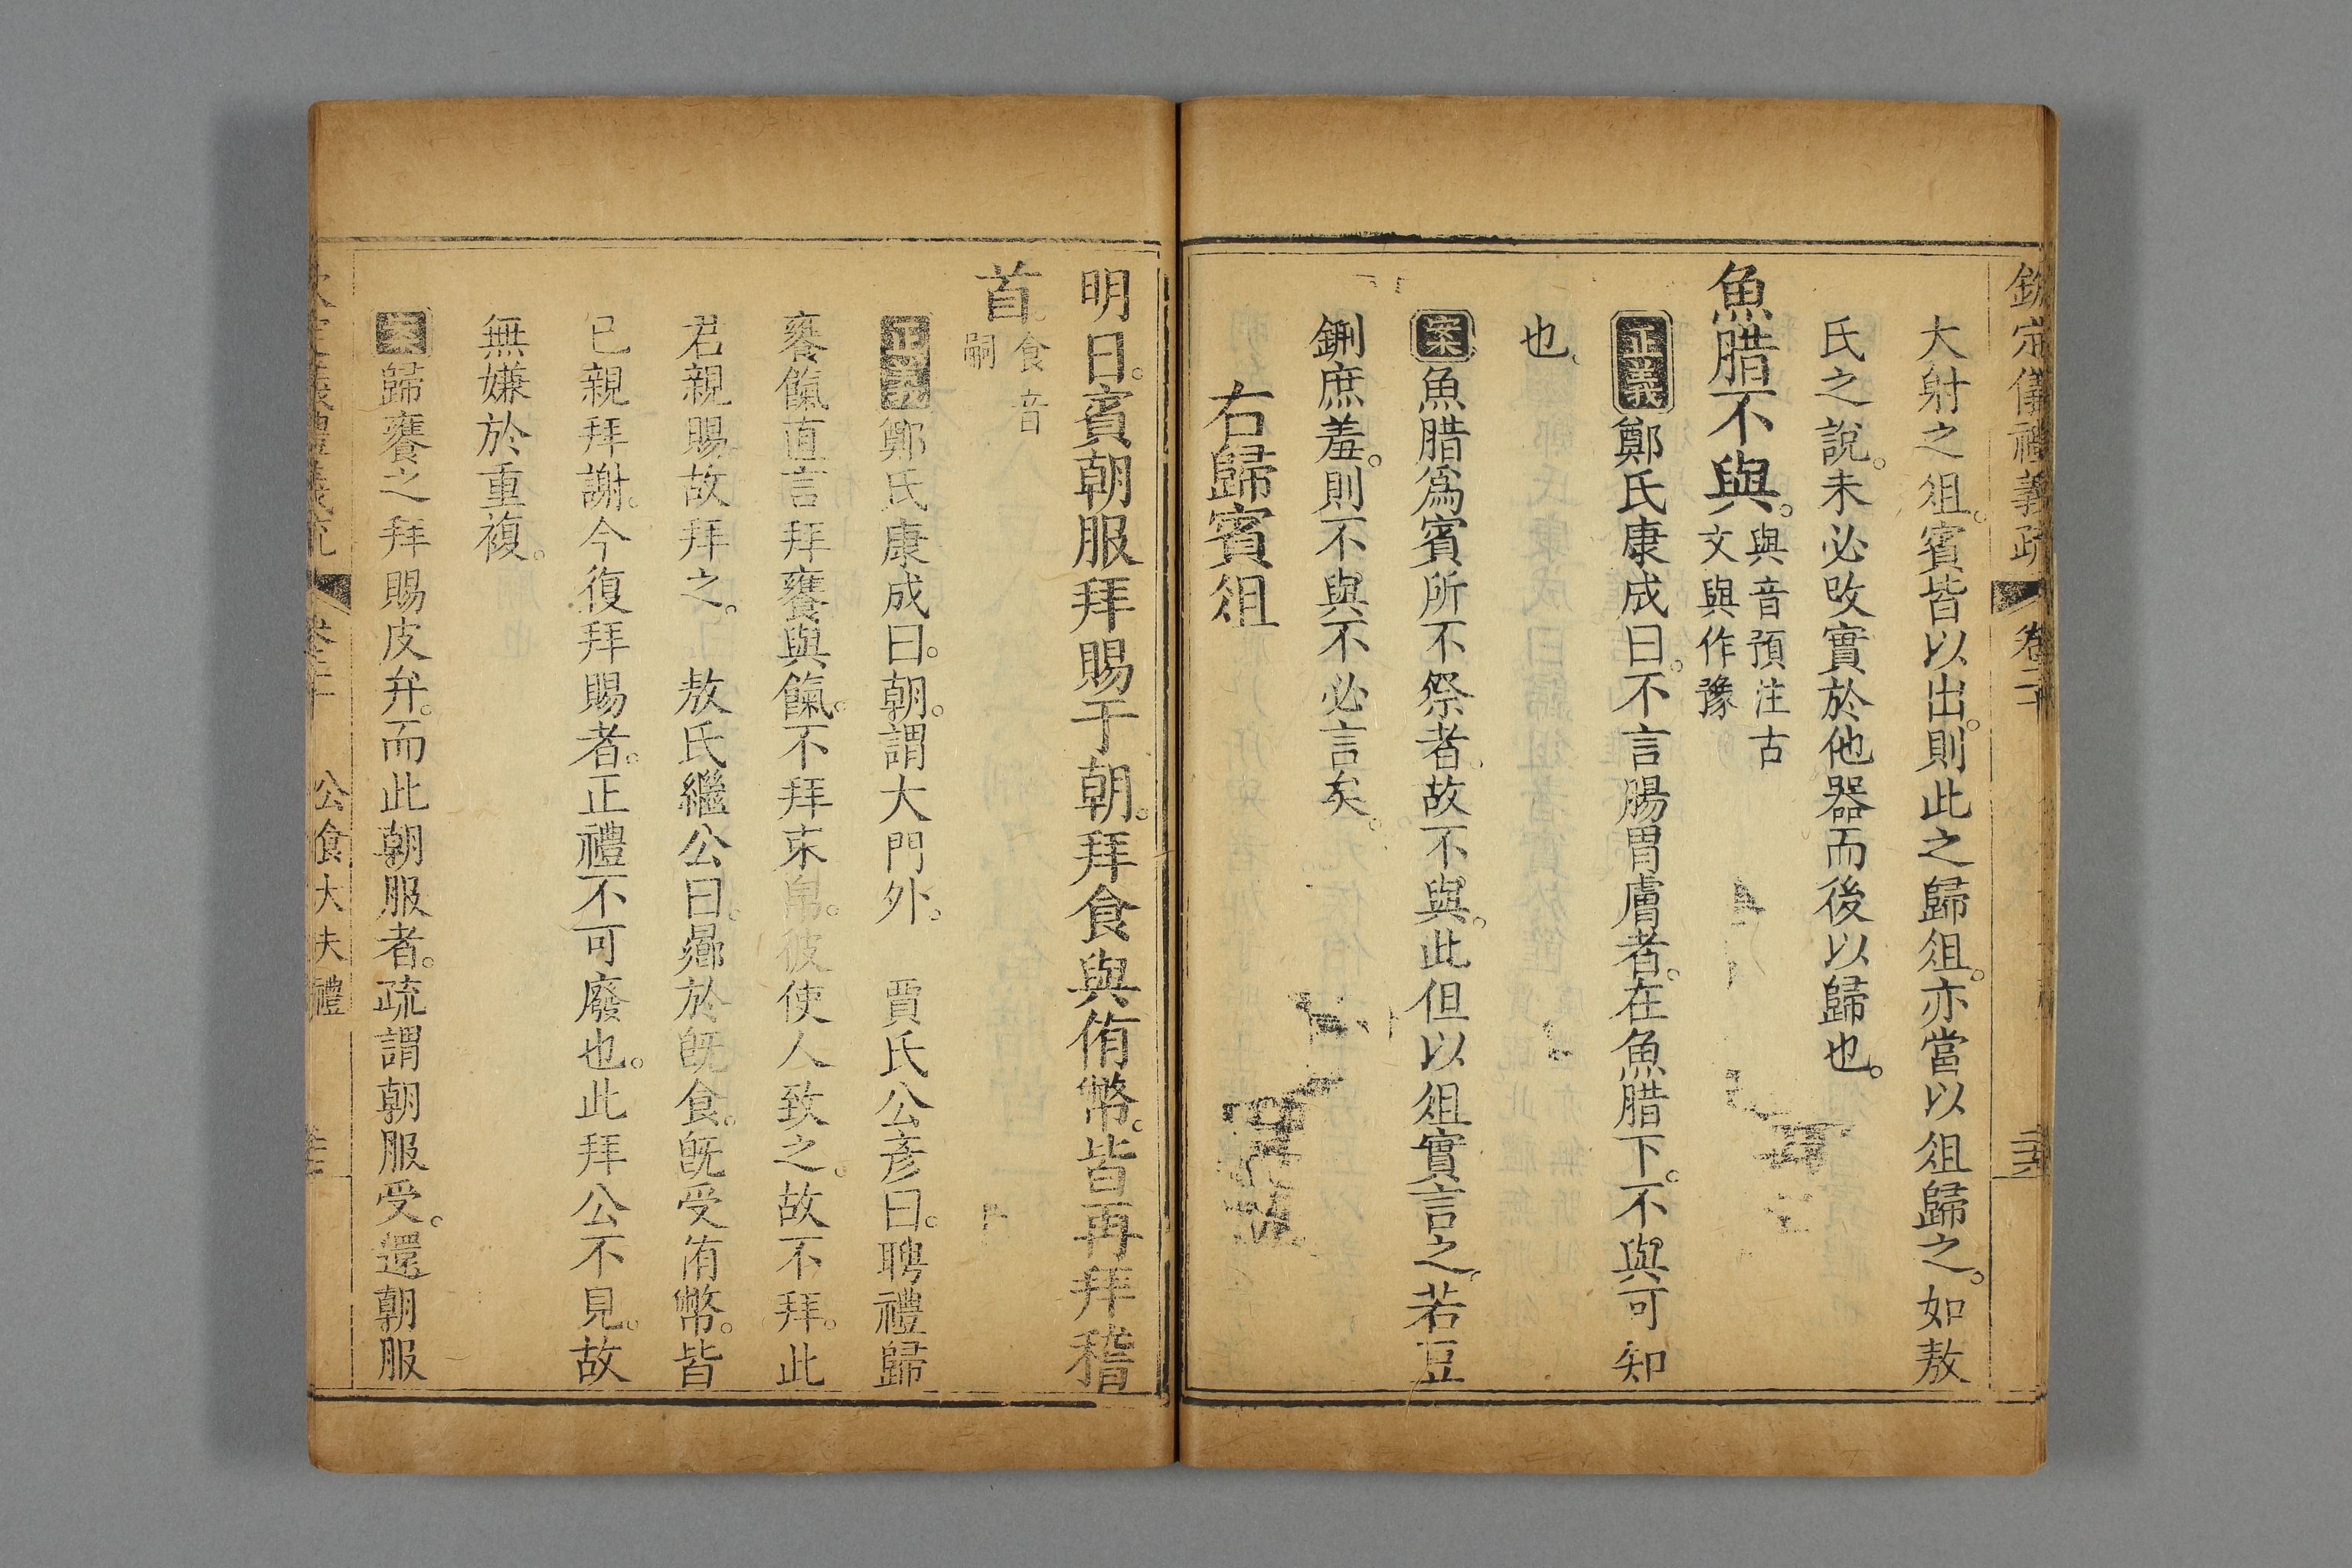 欽定儀禮義疏 卷二十 三六
大射之俎。賓皆以出。則此之歸俎。亦當以俎歸之。如敖
氏之說。未必改實於他器而後以歸也。
魚腊不與。與音預注古文與作豫
正義鄭氏康成曰。不言腸胃膚者。在魚腊下。不與可知
也。
案魚腊爲賓所不祭者。故不與。此但以俎實言之。若豆
鉶庶羞。則不與不必言矣。
右歸賓俎
明日。賓朝服拜賜于朝。拜食與侑幣。皆再拜稽
首。食音嗣
正義鄭氏康成曰。朝。謂大門外。 賈氏公彥曰。聘禮歸
饔餼直言拜饔與餼。不拜束帛。彼使人致之。故不拜。此
君親賜故拜之。 敖氏繼公曰。曏於旣食。旣受侑幣。皆
已親拜謝。今復拜賜者。正禮不可廢也。此拜公不見。故
無嫌於重複。
案歸饔之拜賜皮弁。而此朝服者。疏謂朝服受。還朝服
公食大夫禮